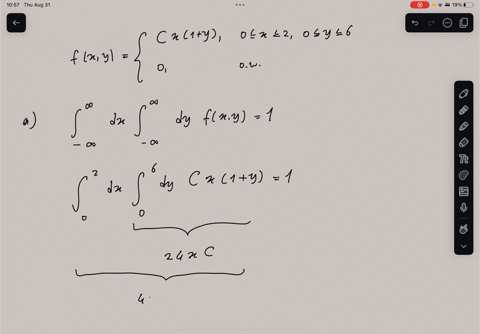 10:57 Thu Aug 31
19%
f(x,y) = { Cx(1+y), 0≤x≤2, 0≤y≤6
0, o.w.
a) ∫_{-∞}^{∞} dx ∫_{-∞}^{∞} dy f(x,y) = 1
∫_0^2 dx ∫_0^6 dy C x(1+y) = 1
24x C
4.